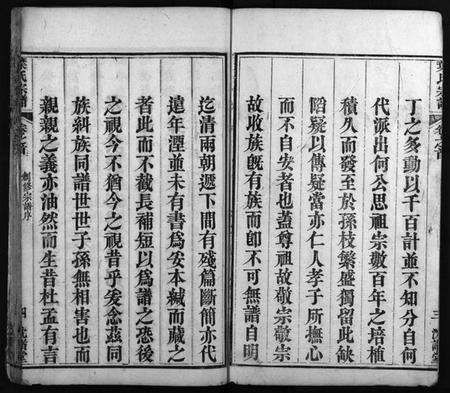 丁之多動以千百計並不知分自何
代派出何公思祖宗數百年之培植
積久而發至於孫枝繁盛獨留此缺
陷疑以傳疑當亦仁人孝子所撫心
而不自安者也蓋尊祖故敬宗敬宗
故收族旣有族而卽不可無譜自明
迄清兩朝遞下間有殘篇斷簡亦代
遠年湮並未有書爲安本緘而藏之
者此而不截長補短以爲譜之恐後
之視今不猶今之視昔乎爰念茲同
族糾族同譜世世子孫無相害也而
親親之義亦油然而生昔杜孟有言
葉氏宗譜
卷之首
創修宗譜序
四
三